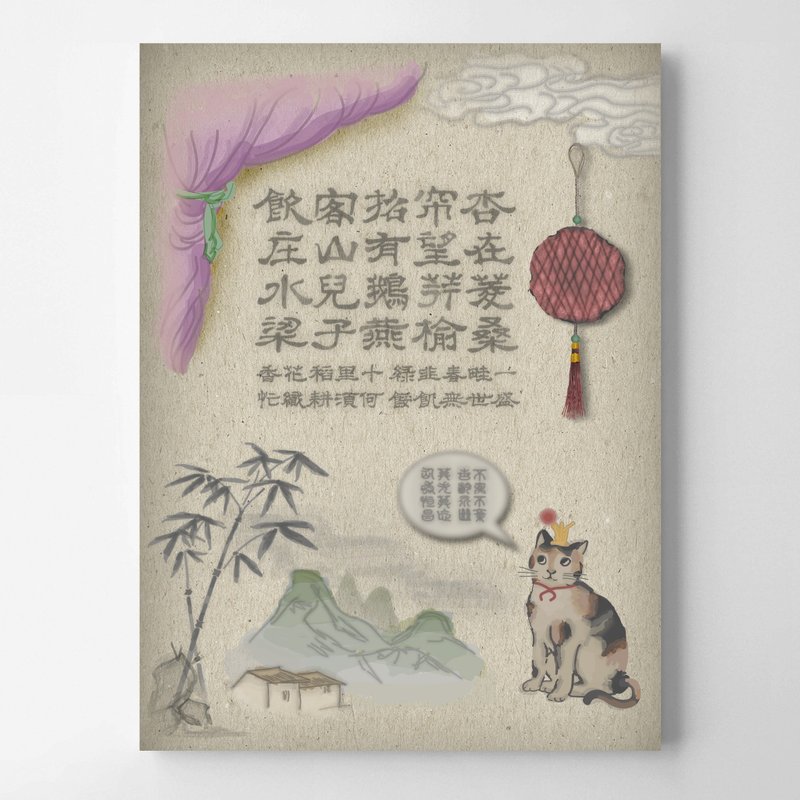 杏帘招客飲
在望有山庄
菱荇鵝兒水
桑榆燕子梁
一畦春韭綠 十里稻花香
盛世無飢餒 何湏耕織忙